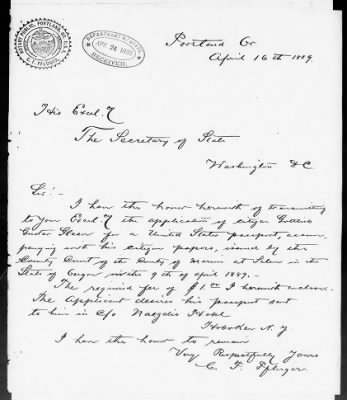 NOTARY PUBLIC, PORTLAND,
C. F. PFLUGER.
DEPARTMENT OF STATE
APR 24 1889
RECEIVED.
Portland Or
April 16th 1889.
His Excel.y
The Secretary of State
Washington D.C.
Sir:-
I have the honor herewith of transmitting
to Your Excel.y the application of citizen Gottlieb
Gustav for a United States passport, accom-
panying with his citizen papers, issued by the
County Court of the County of Marion at Salem in the
State of Oregon 9th of April 1889.-
The required fee of $1.00 I herewith enclose.
The Applicant desires his passport sent
to him in c/o Naegelis Hotel
Hoboken N.J
I have the honor to remain
Very Respectfully Yours
C. F. Pfluger